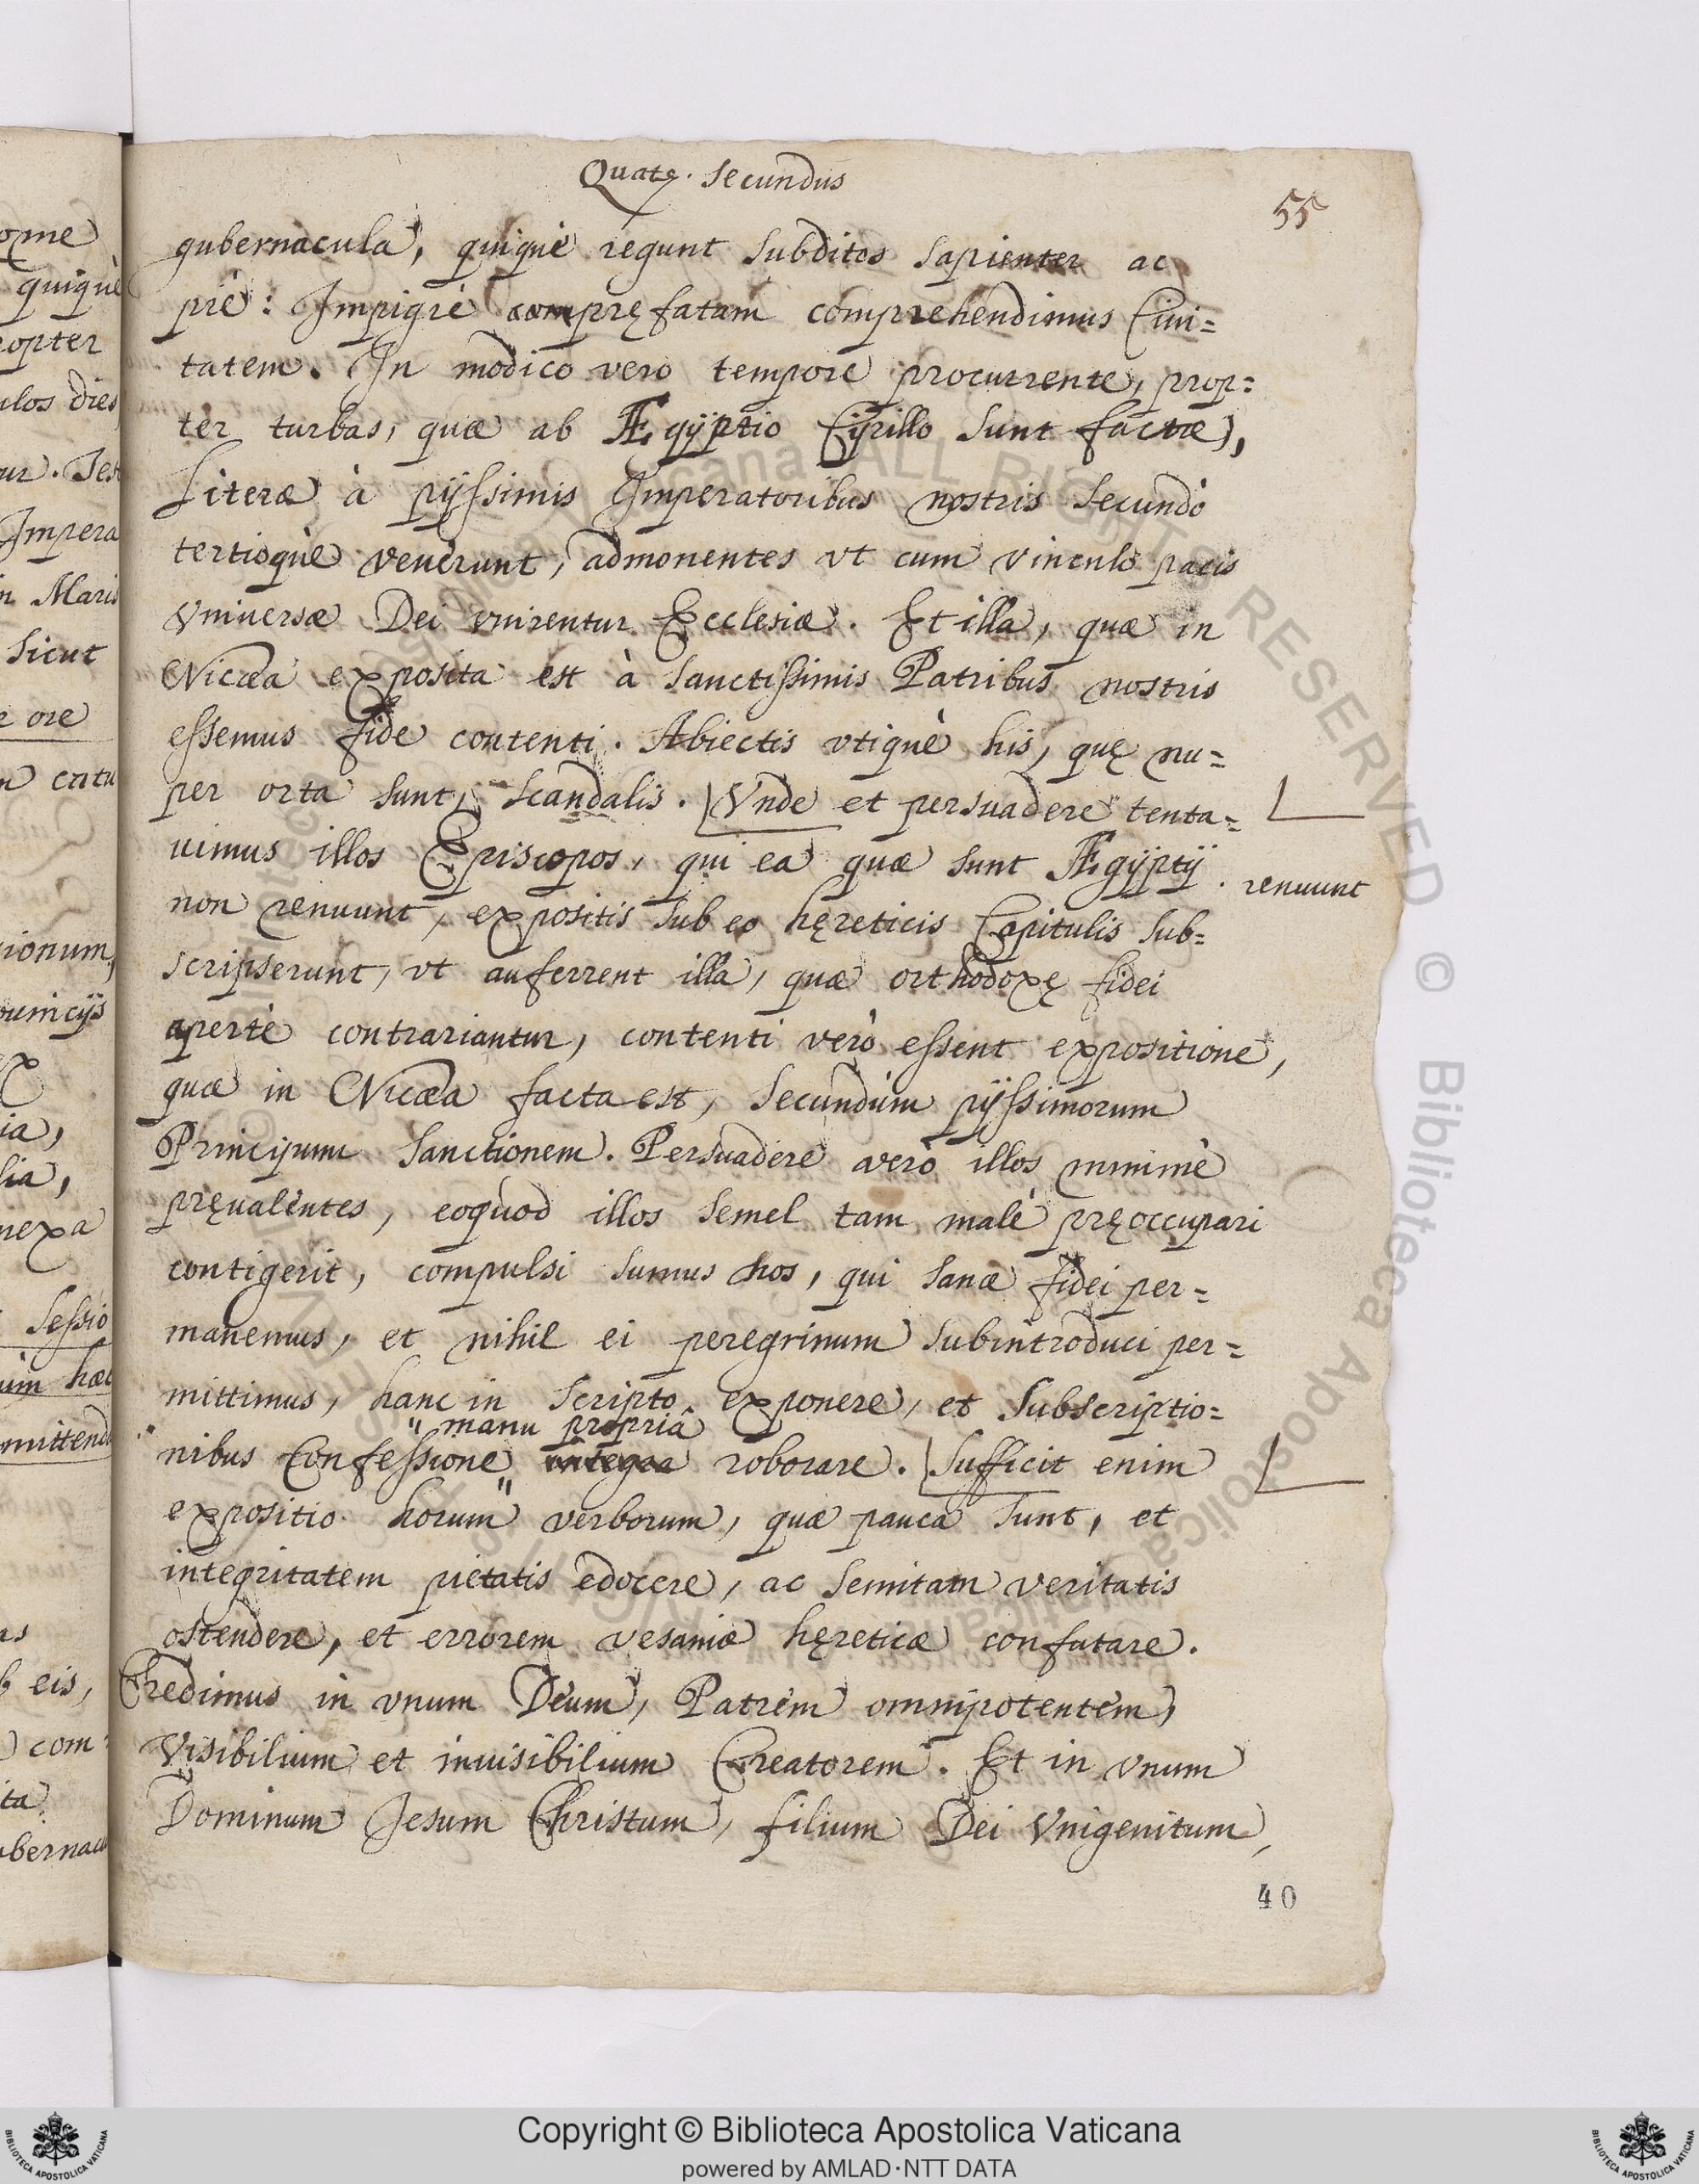 Quat. Secundus
55
gubernacula, quiquè regunt subditos sapienter ac
piè: Impigrè compręfatam comprehendimus Ciui=
tatem. In modico vero tempore procurrente, prop=
ter turbas, quæ ab Ægyptio Cyrillo sunt factæ,
Literæ à pijssimis Imperatoribus nostris secundò
tertioquè venerunt, admonentes vt cum vinculo pacis
Vniuersæ Dei vnirentur Ecclesiæ. Et illa, quæ in
Nicæa exposita est à sanctissimis Patribus nostris
essemus fide contenti. Abiectis vtiquè his, quę nu=
per orta sunt, scandalis. Vnde et persuadere tenta=
uimus illos Episcopos, qui ea quæ sunt Ægyptij
. renuunt
non renuunt, expositis sub eo hęreticis Capitulis sub=
scripserunt, vt auferrent illa, quæ orthodoxę fidei
apertè contrariantur, contenti verò essent expositione,
quæ in Nicæa facta est, secundùm pijssimorum
Principum sanctionem. Persuadere verò illos minimè
pręualentes, eoquod illos semel tam malè pręoccupari
contigerit, compulsi sumus hos, qui sanæ fidei per=
manemus, et nihil ei peregrinum subintroduci per=
mittimus, hanc in scripto exponere, et subscriptio=
" manu propriâ
nibus Confessione integra roborare. Sufficit enim
expositio horum verborum, quæ pauca sunt, et
integritatem pietatis edocere, ac semitam veritatis
ostendere, et errorem vesaniæ hęreticæ confutare.
Credimus in vnum Deum, Patrem omnipotentem,
Visibilium et inuisibilium Creatorem. Et in vnum
Dominum Jesum Christum, filium Dei Vnigenitum,
40
Copyright © Biblioteca Apostolica Vaticana
powered by AMLAD·NTT DATA